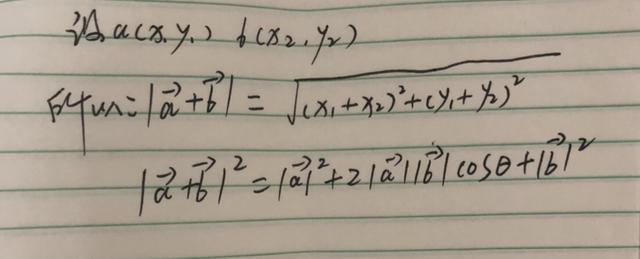 设a(x₁y₁) b(x₂,y₂)
所以:|a⃗+b⃗|=√(x₁+x₂)²+(y₁+y₂)²
|a⃗+b⃗|²=|a⃗|²+2|a⃗||b⃗|cosθ+|b⃗|²